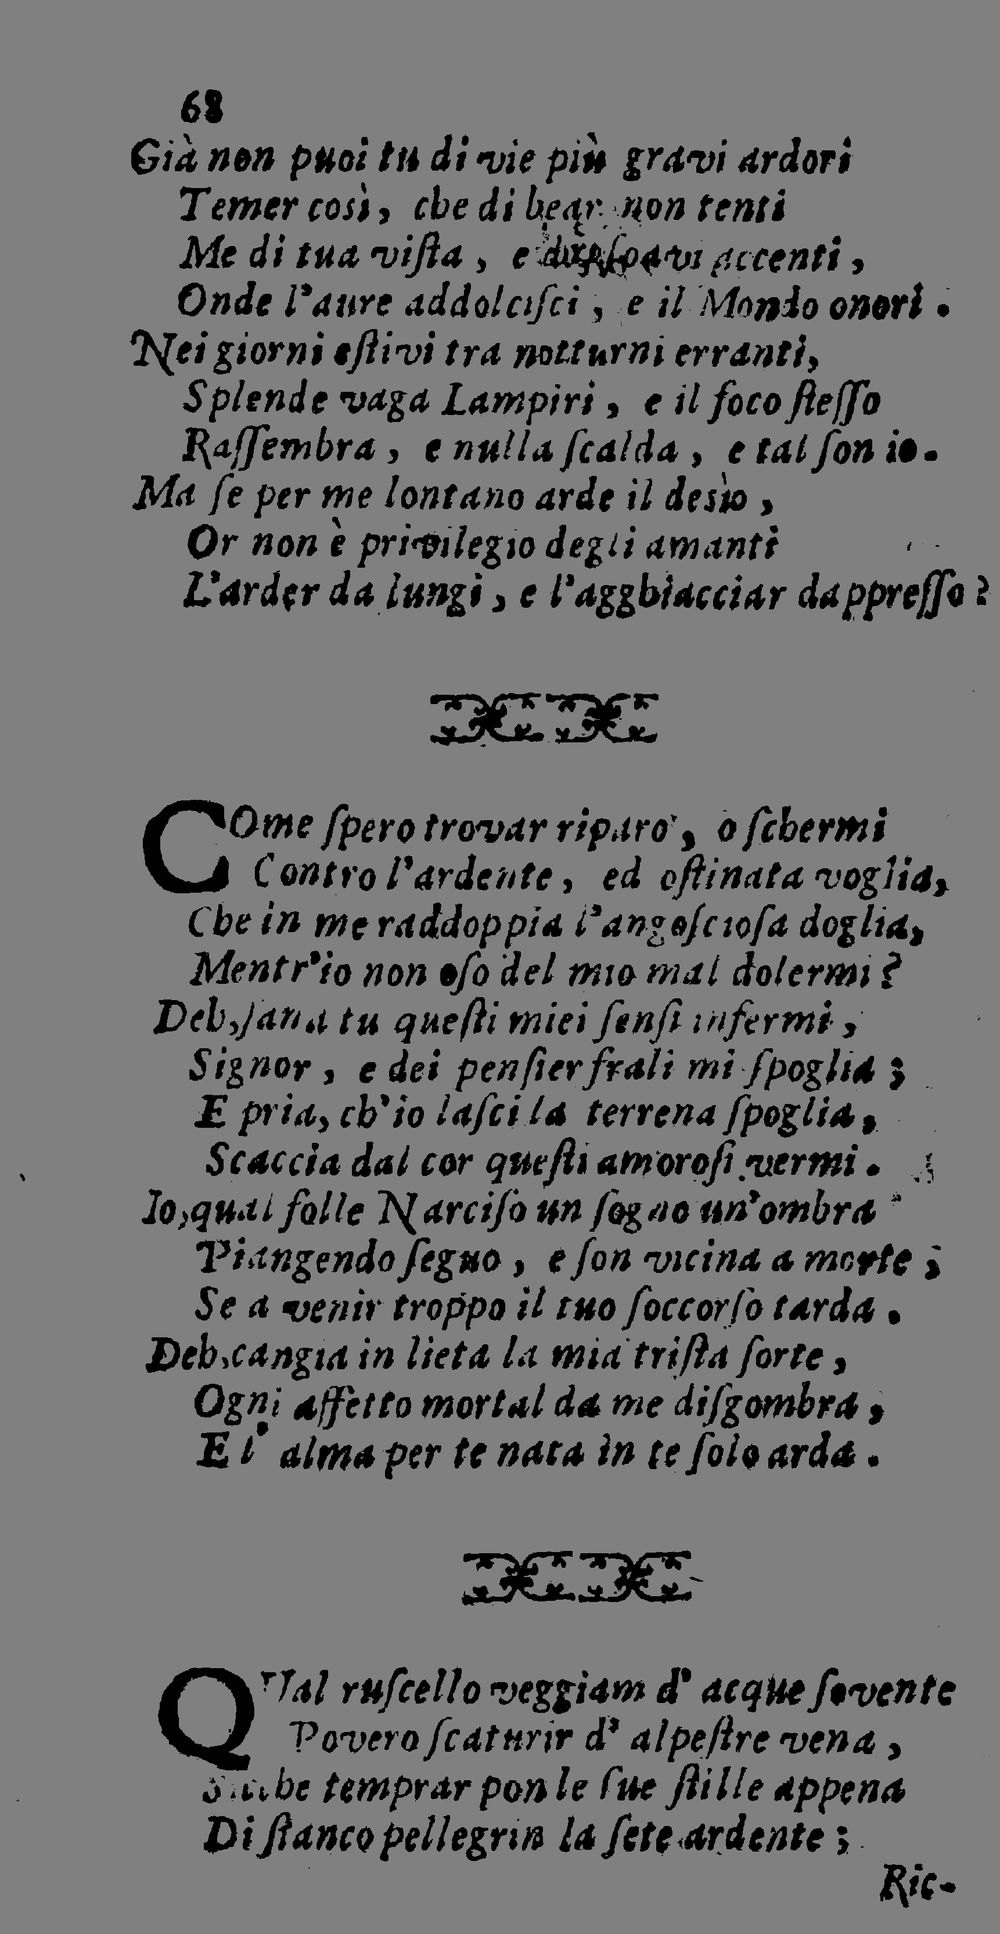 68
Già non puoi tu di vie più gravi ardori
Temer così, che di bear non tenti
Me di tua viſta, e accenti,
Onde l'aure addolciſci, e il Mondo onori.
Nei giorni eſtivi tra notturni erranti,
Splende vaga Lampiri, e il foco ſteſſo
Raſſembra, e nulla ſcalda, e tal ſon io.
Ma ſe per me lontano arde il desìo,
Or non è privilegio degli amanti
L'arder da lungi, e l'agghiacciar dappreſſo?
COme ſpero trovar riparo, o ſchermi
Contro l'ardente, ed oſtinata voglia,
Che in me raddoppia l'angoſcioſa doglia,
Mentr'io non oſo del mio mal dolermi?
Deh, ſana tu queſti miei ſenſi infermi,
Signor, e dei penſier frali mi ſpoglia;
E pria, ch'io laſci la terrena ſpoglia,
Scaccia dal cor queſti amoroſi vermi.
Io, qual folle Narciſo un ſogno un'ombra
Piangendo ſeguo, e ſon vicina a morte;
Se a venir troppo il tuo ſoccorſo tarda.
Deh, cangia in lieta la mia triſta ſorte,
Ogni affetto mortal da me diſgombra,
E l' alma per te nata in te ſolo arda.
QUal ruſcello veggiam d' acque ſovente
Povero ſcaturir d' alpeſtre vena,
temprar pon le ſue ſtille appena
Di ſtanco pellegrin la ſete ardente;
Ric-